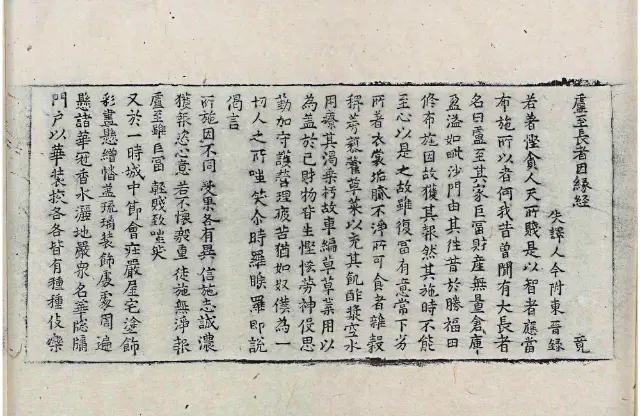 盧至長者因緣經
失譯人今附東晉錄 竟
若著慳貪人天所賤是以智者應當
布施所以者何我昔曾聞有大長者
名曰盧至其家巨富財産無量倉庫
盈溢如毗沙門由其往昔於勝福田
修布施因故獲其報然其施時不能
至心以是之故雖復冨有意常下劣
所著衣裳垢膩不淨所可食者雜穀
稗莠藜藿草菜以充其飢酢漿空水
用療其渴乘朽故車編草草葉用以
為盖於己財物皆生慳悋勞神役思
勤加守護營理疲苦猶如奴僕為一
切人之所嗤笑尒時羅睺羅即說
偈言
所施因不同 受果各有異 信施志誠濃
獲報恣心意 若不懷殷重 徒施無淨報
盧至雖巨冨 輕賤致嗤笑
又於一時城中節會庄嚴屋宅塗飾
彩畫懸繒幡盖琉璃裝飾處處周遍
懸諸華冠香水灑地嚴衆名華隱牖
門户以華裝挍各各皆有種種伎樂